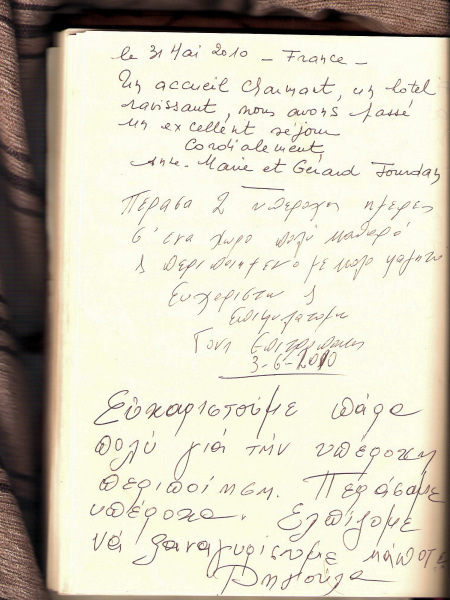 le 31 Mai 2010 - France -
Un accueil charmant, un hôtel
ravissant, nous avons passé
un excellent séjour
Cordialement,
Anne-Marie et Gérard Jourdan
Περασα 2 υπεροχες ημερες
σ' ενα χωρο πολυ καθαρό
& περιποιημενο με καλο φαγητο
Ευχαριστω &
3-6-2010
Εὐχαριστοῦμε πάρα
πολύ γιά τήν υπέροχη
περιποίηση. Περάσαμε
υπέροχα. Ελπίζομε
νά ξαναγυρίσουμε κάποτε